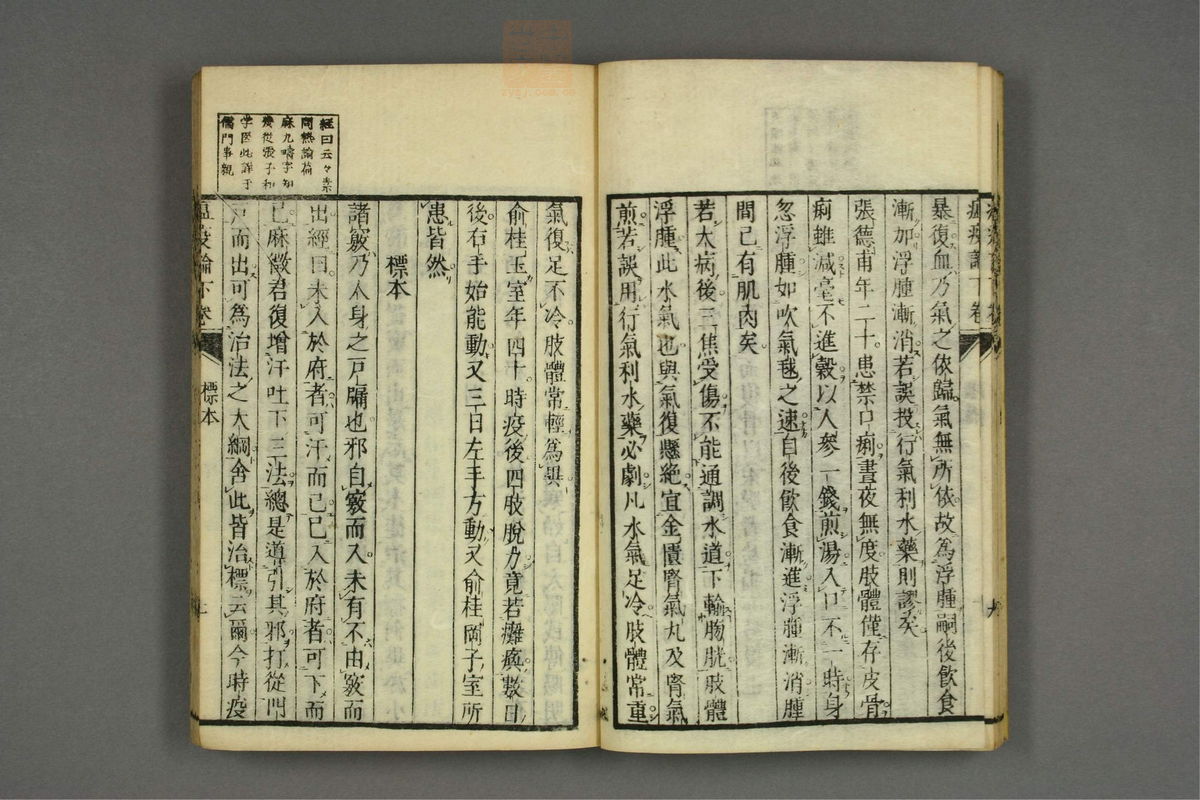 暴復血乃氣之依歸氣無所依故為浮腫嗣後飲食
漸加浮腫漸消若誤投行氣利水藥則謬矣
張德甫年二十患禁口痢晝夜無度肢體僅存皮骨
痢雖減毫不進穀以人參一錢煎湯入口不一時身
忽浮腫如吹氣毬之速自後飲食漸進浮腫漸消腫
間已有肌肉矣
若大病後三焦受傷不能通調水道下輸膀胱肢體
浮腫此水氣也與氣復懸絕宜金匱腎氣丸及腎氣
煎若誤用行氣利水藥必劇凡水氣足冷肢體常重
氣復足不冷肢體常輕為異
俞桂玉室年四十時疫後四肢脫力竟若癱瘓數日
後右手始能動又三日左手方動又俞桂岡子室所
患皆然
標本
諸竅乃人身之戶牖也邪自竅而入未有不由竅而
出經曰未入於府者可汗而已已入於府者可下而
已麻徵君復增汗吐下三法總是導引其邪打從門
戶而出可為治法之大綱舍此皆治標云爾今時疫
溫疫論下卷
標本
經曰云々素
問熱論篇
麻九疇字知
幾從張子和
学医此詳于
儒門事親